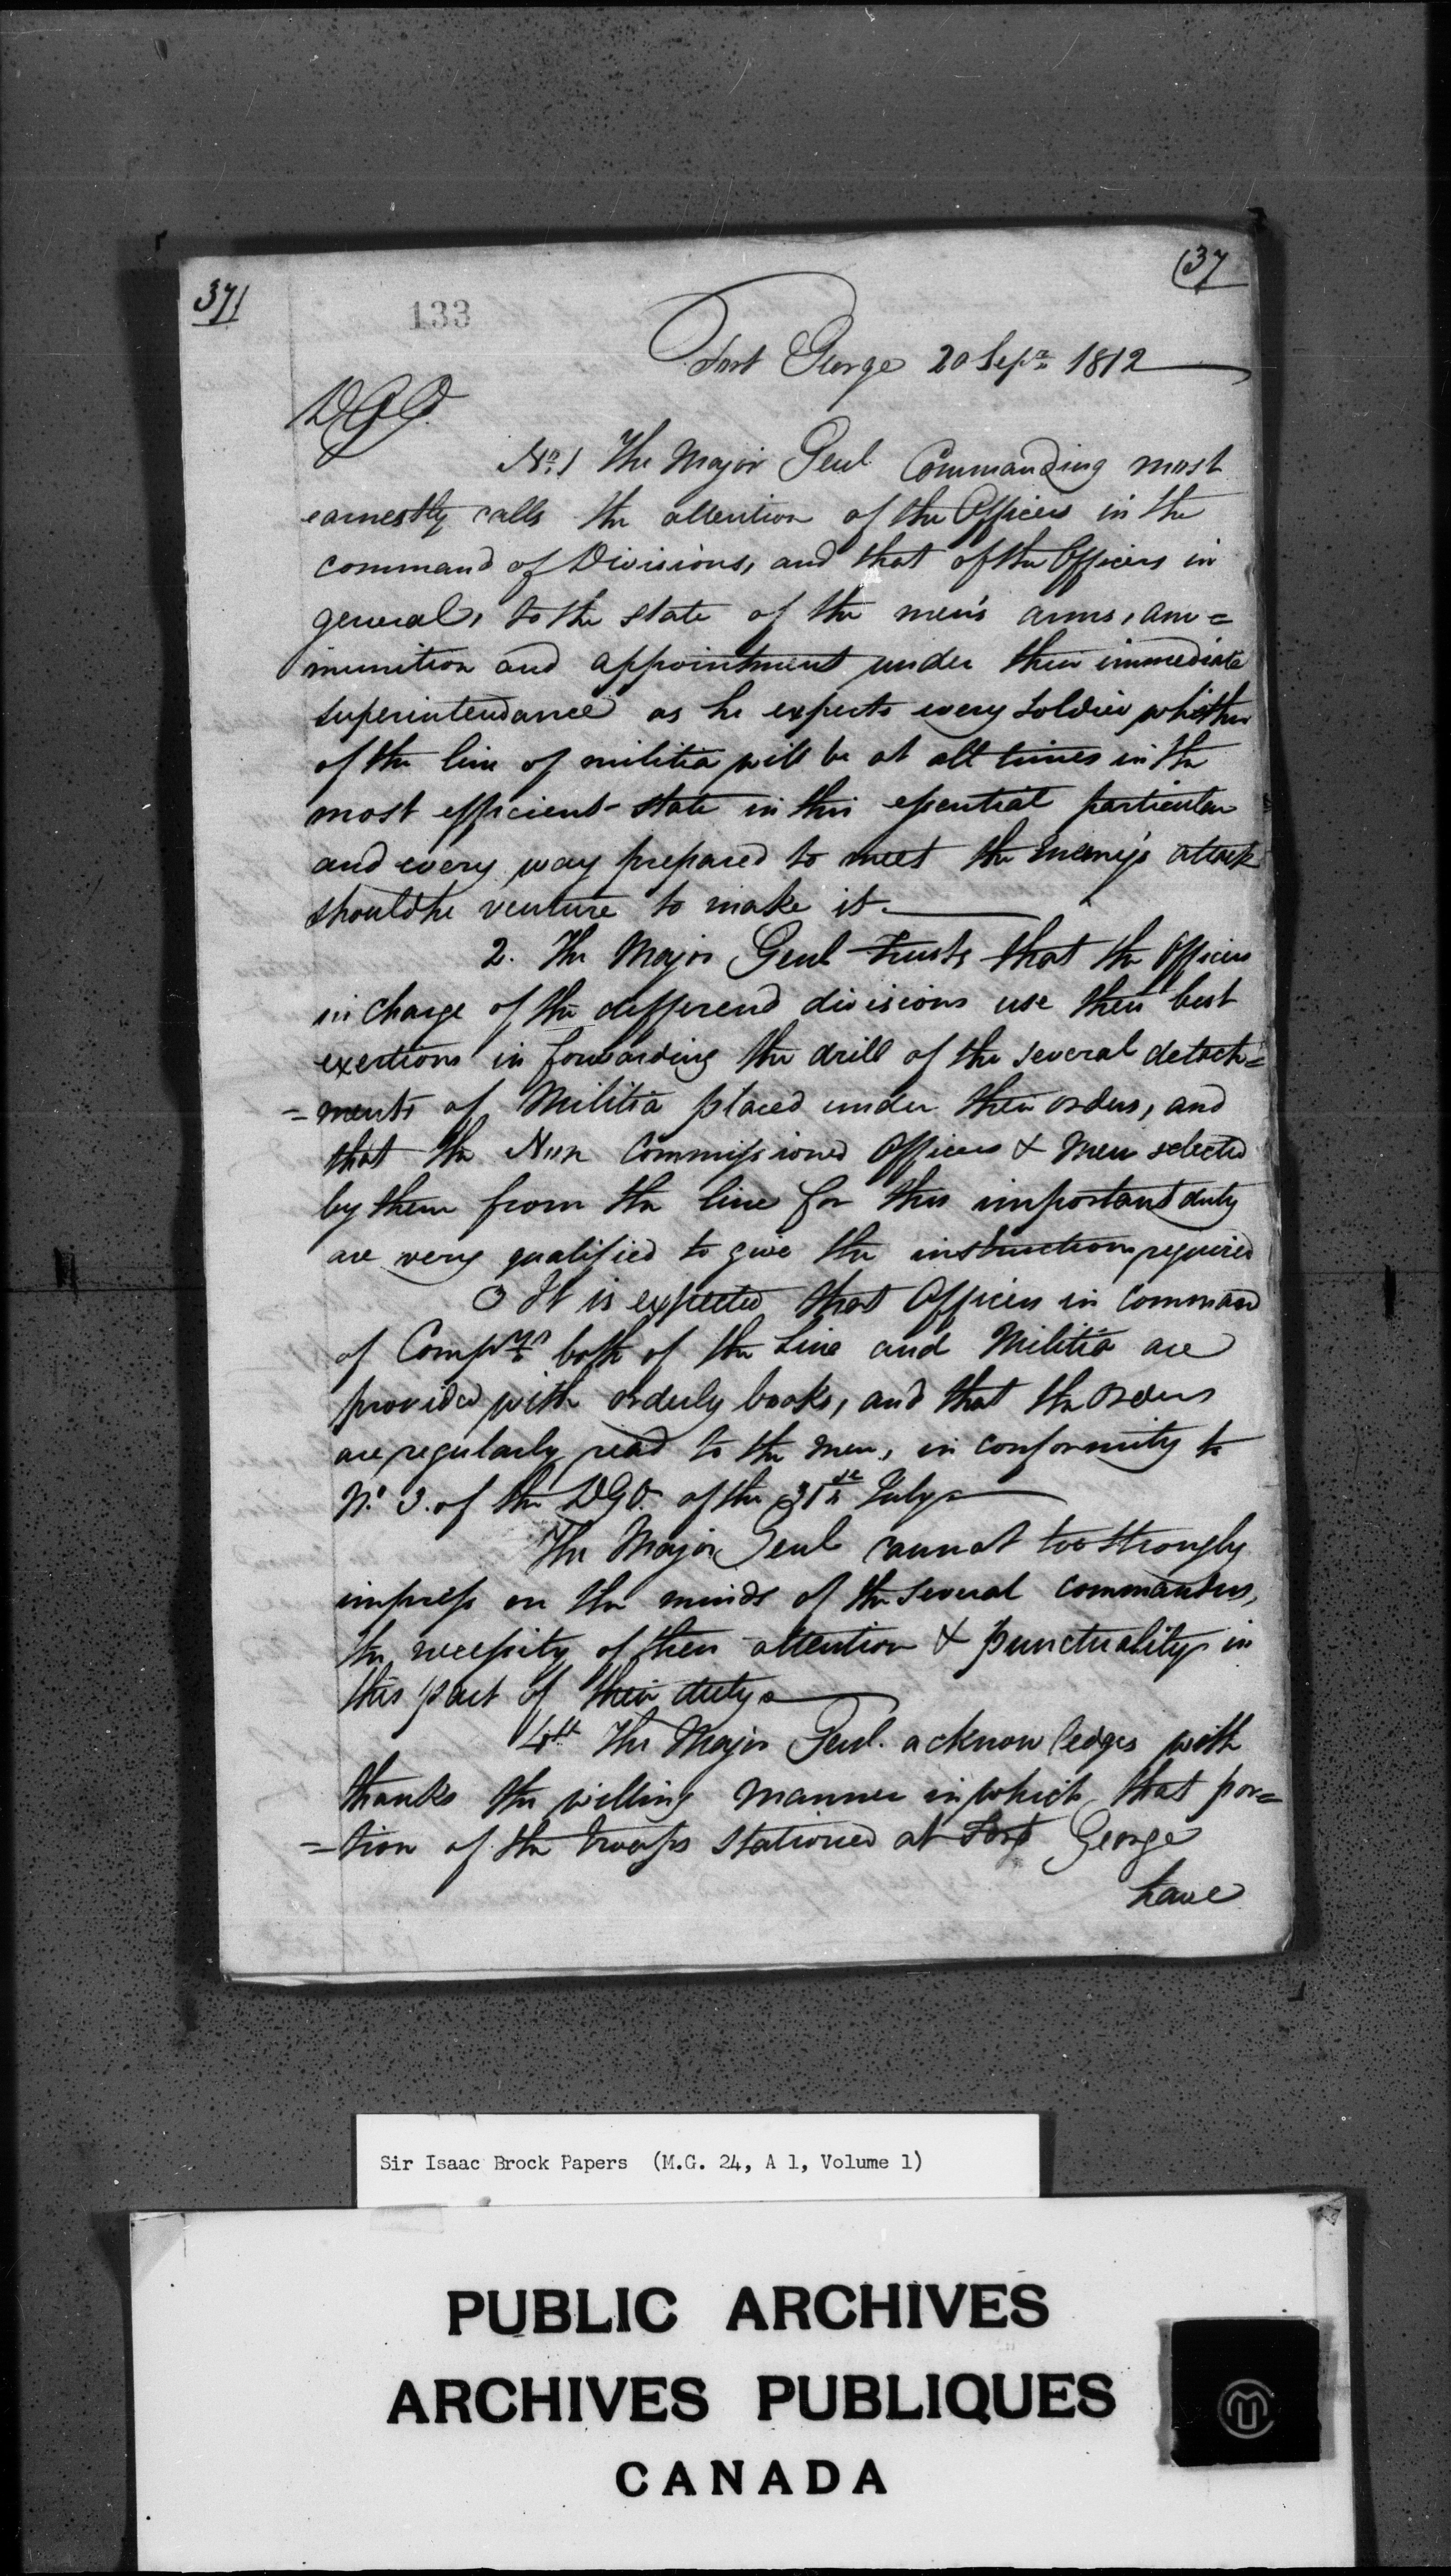 37
37
133
Fort George 20 Sepr 1812
DGO.
No. 1 The Major Genl Commanding most
earnestly calls the attention of the Officers in the
command of Divisions, and that of the Officers in
general, to the state of the men's arms, am=
munition and appointment under their immediate
superintendance as he expects every soldier whether
of the line of militia will be at all times in the
most efficient state in this essential particular
and every way prepared to meet the Enemy's attack
should he venture to make it.
2. The Major Genl trusts that the Officers
in charge of the differend divisions use their best
exertions in forwarding the drill of the several detach=
=ments of Militia placed under their orders, and
that the Non Commissioned Officers & Men selected
by them from the line for this important duty
are very qualified to give the instruction required
3 It is expected that Officers in command
of Compys both of the Line and Militia are
provided with orderly books, and that the Orders
are regularly read to the men, in conformity to
No. 3. of the DGO. of the 31st July
The Major Genl cannot too strongly
impress on the minds of the several commanders,
the necessity of their attention & punctuality in
this part of their duty
4th The Major Genl. acknowledges with
thanks the willing manner in which that por=
=tion of the troops stationed at Fort George
have
Sir Isaac Brock Papers (M.G. 24, A 1, Volume 1)
PUBLIC ARCHIVES
ARCHIVES PUBLIQUES
CANADA